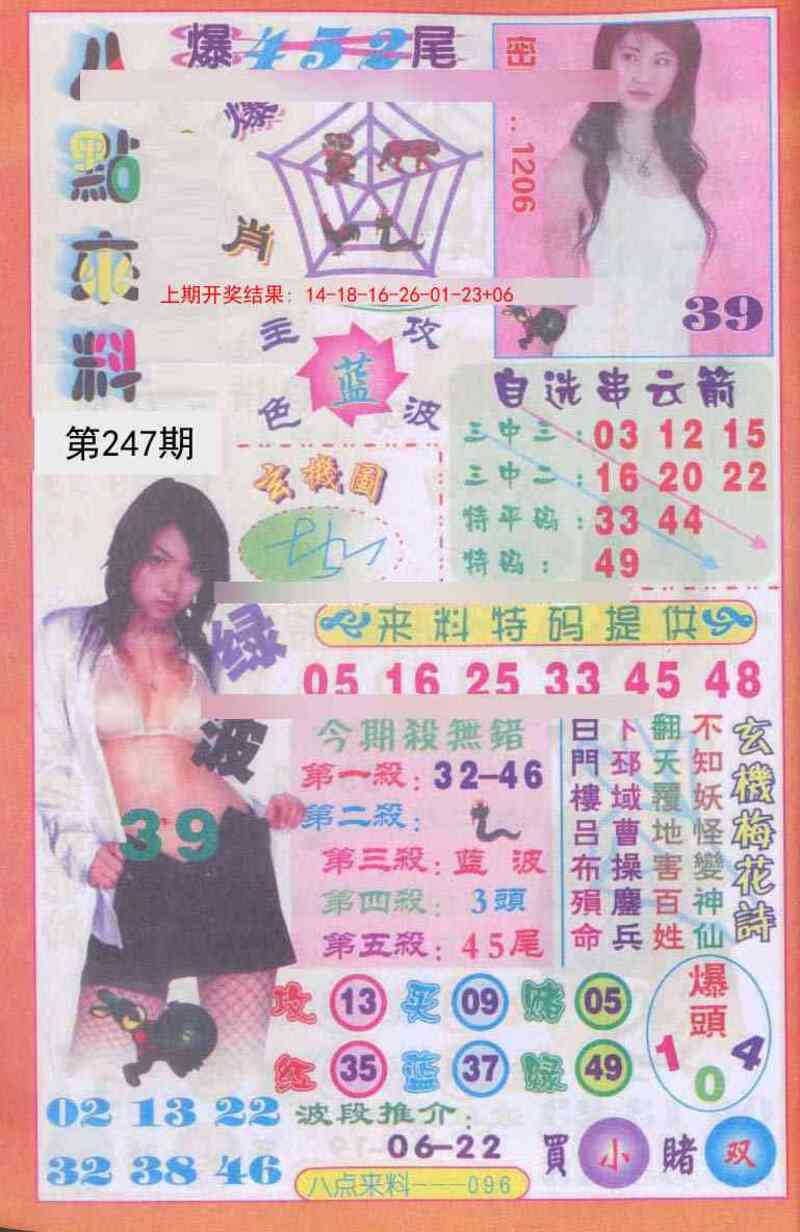 八點來料
爆452尾
密
：1206
爆
肖
上期开奖结果：14-18-16-26-01-23+06
39
主攻
蓝
色波
第247期
自选串云箭
三中三：03 12 15
三中二：16 20 22
特平码：33 44
特码：49
玄機圖
来料特码提供
05 16 25 33 45 48
绿
波
39
今期殺無錯
第一殺：32-46
第二殺：
第三殺：蓝波
第四殺：3頭
第五殺：45尾
玄機梅花詩
不知妖怪變神仙
翻天覆地害百姓
下邳域曹操鏖兵
白門樓呂布殞命
攻 13 买 09 赌 05
红 35 蓝 37 绿 49
爆頭
1 0 4
02 13 22
32 38 46
波段推介：
06-22
買小賭双
八点来料---096